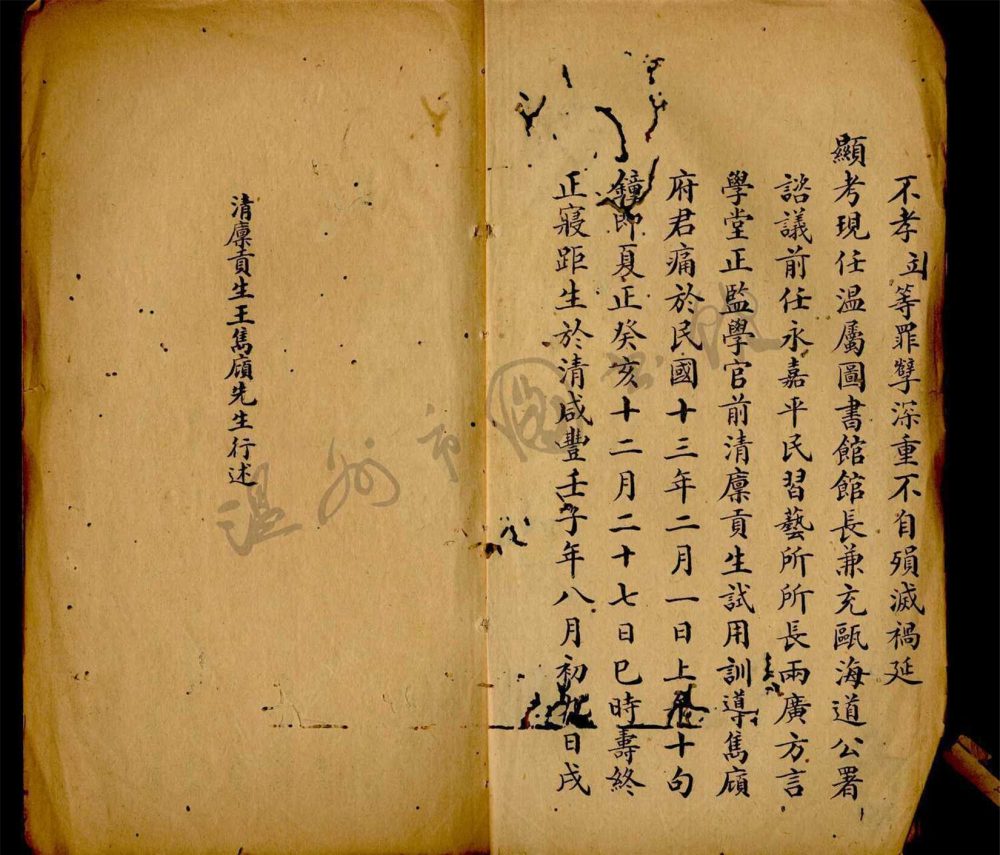 不孝立等罪孽深重不自殞滅禍延
顯考現任温屬圖書館館長兼充甌海道公署
諮議前任永嘉平民習藝所所長兩廣方言
學堂正監學官前清廩貢生試用訓導雋廎
府君痛於民國十三年二月一日上午十句
鐘即夏正癸亥十二月二十七日巳時壽終
正寢距生於清咸豐壬子年八月初九日戌
清廩貢生王雋廎先生行述
温州市圖書館